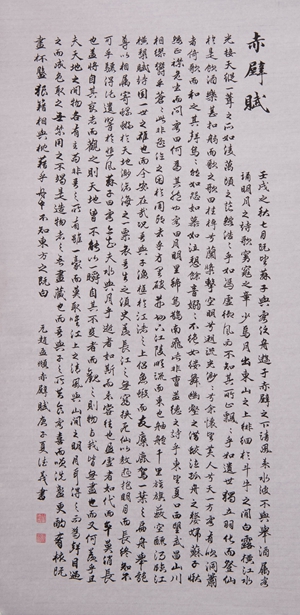 赤壁賦
壬戌之秋七月既望蘇子與客泛舟遊于赤壁之下清風徐來水波不興舉酒屬客
誦明月之詩歌窈窕之章少焉月出於東山之上徘徊於斗牛之間白露橫江水
光接天縱一葦之所如凌萬頃之茫然浩浩乎如馮虛御風而不知其所止飄飄乎如遺世獨立羽化而登仙
於是飲酒樂甚扣舷而歌之歌曰桂棹兮蘭槳擊空明兮泝流光渺渺兮余懷望美人兮天一方客有吹洞簫
者倚歌而和之其聲嗚嗚然如怨如慕如泣如訴餘音嫋嫋不絕如縷舞幽壑之潛蛟泣孤舟之嫠婦蘇子愀
然正襟危坐而問客曰何為其然也客曰月明星稀烏鵲南飛此非曹孟德之詩乎東望夏口西望武昌山川
相繆鬱乎蒼蒼此非孟德之困於周郎者乎方其破荊州下江陵順流而東也舳艫千里旌旗蔽空釃酒臨江
橫槊賦詩固一世之雄也而今安在哉況吾與子漁樵於江渚之上侶魚蝦而友麋鹿駕一葉之扁舟舉匏
尊以相屬寄蜉蝣於天地渺滄海之一粟哀吾生之須臾羨長江之無窮挾飛仙以遨遊抱明月而長終知不
可乎驟得託遺響於悲風蘇子曰客亦知夫水與月乎逝者如斯而未嘗往也盈虛者如代而卒莫消長
也蓋將自其變者而觀之則天地曾不能以一瞬自其不變者而觀之則物與我皆無盡也而又何羨乎且
夫天地之間物各有主苟非吾之所有雖一毫而莫取惟江上之清風與山間之明月耳得之而為聲目遇
之而成色取之無禁用之不竭是造物者之無盡藏也而吾與子之所共食客喜而笑洗盞更酌肴核既
盡杯盤狼籍相與枕藉乎舟中不知東方之既白 元趙孟頫赤壁賦庚子夏書